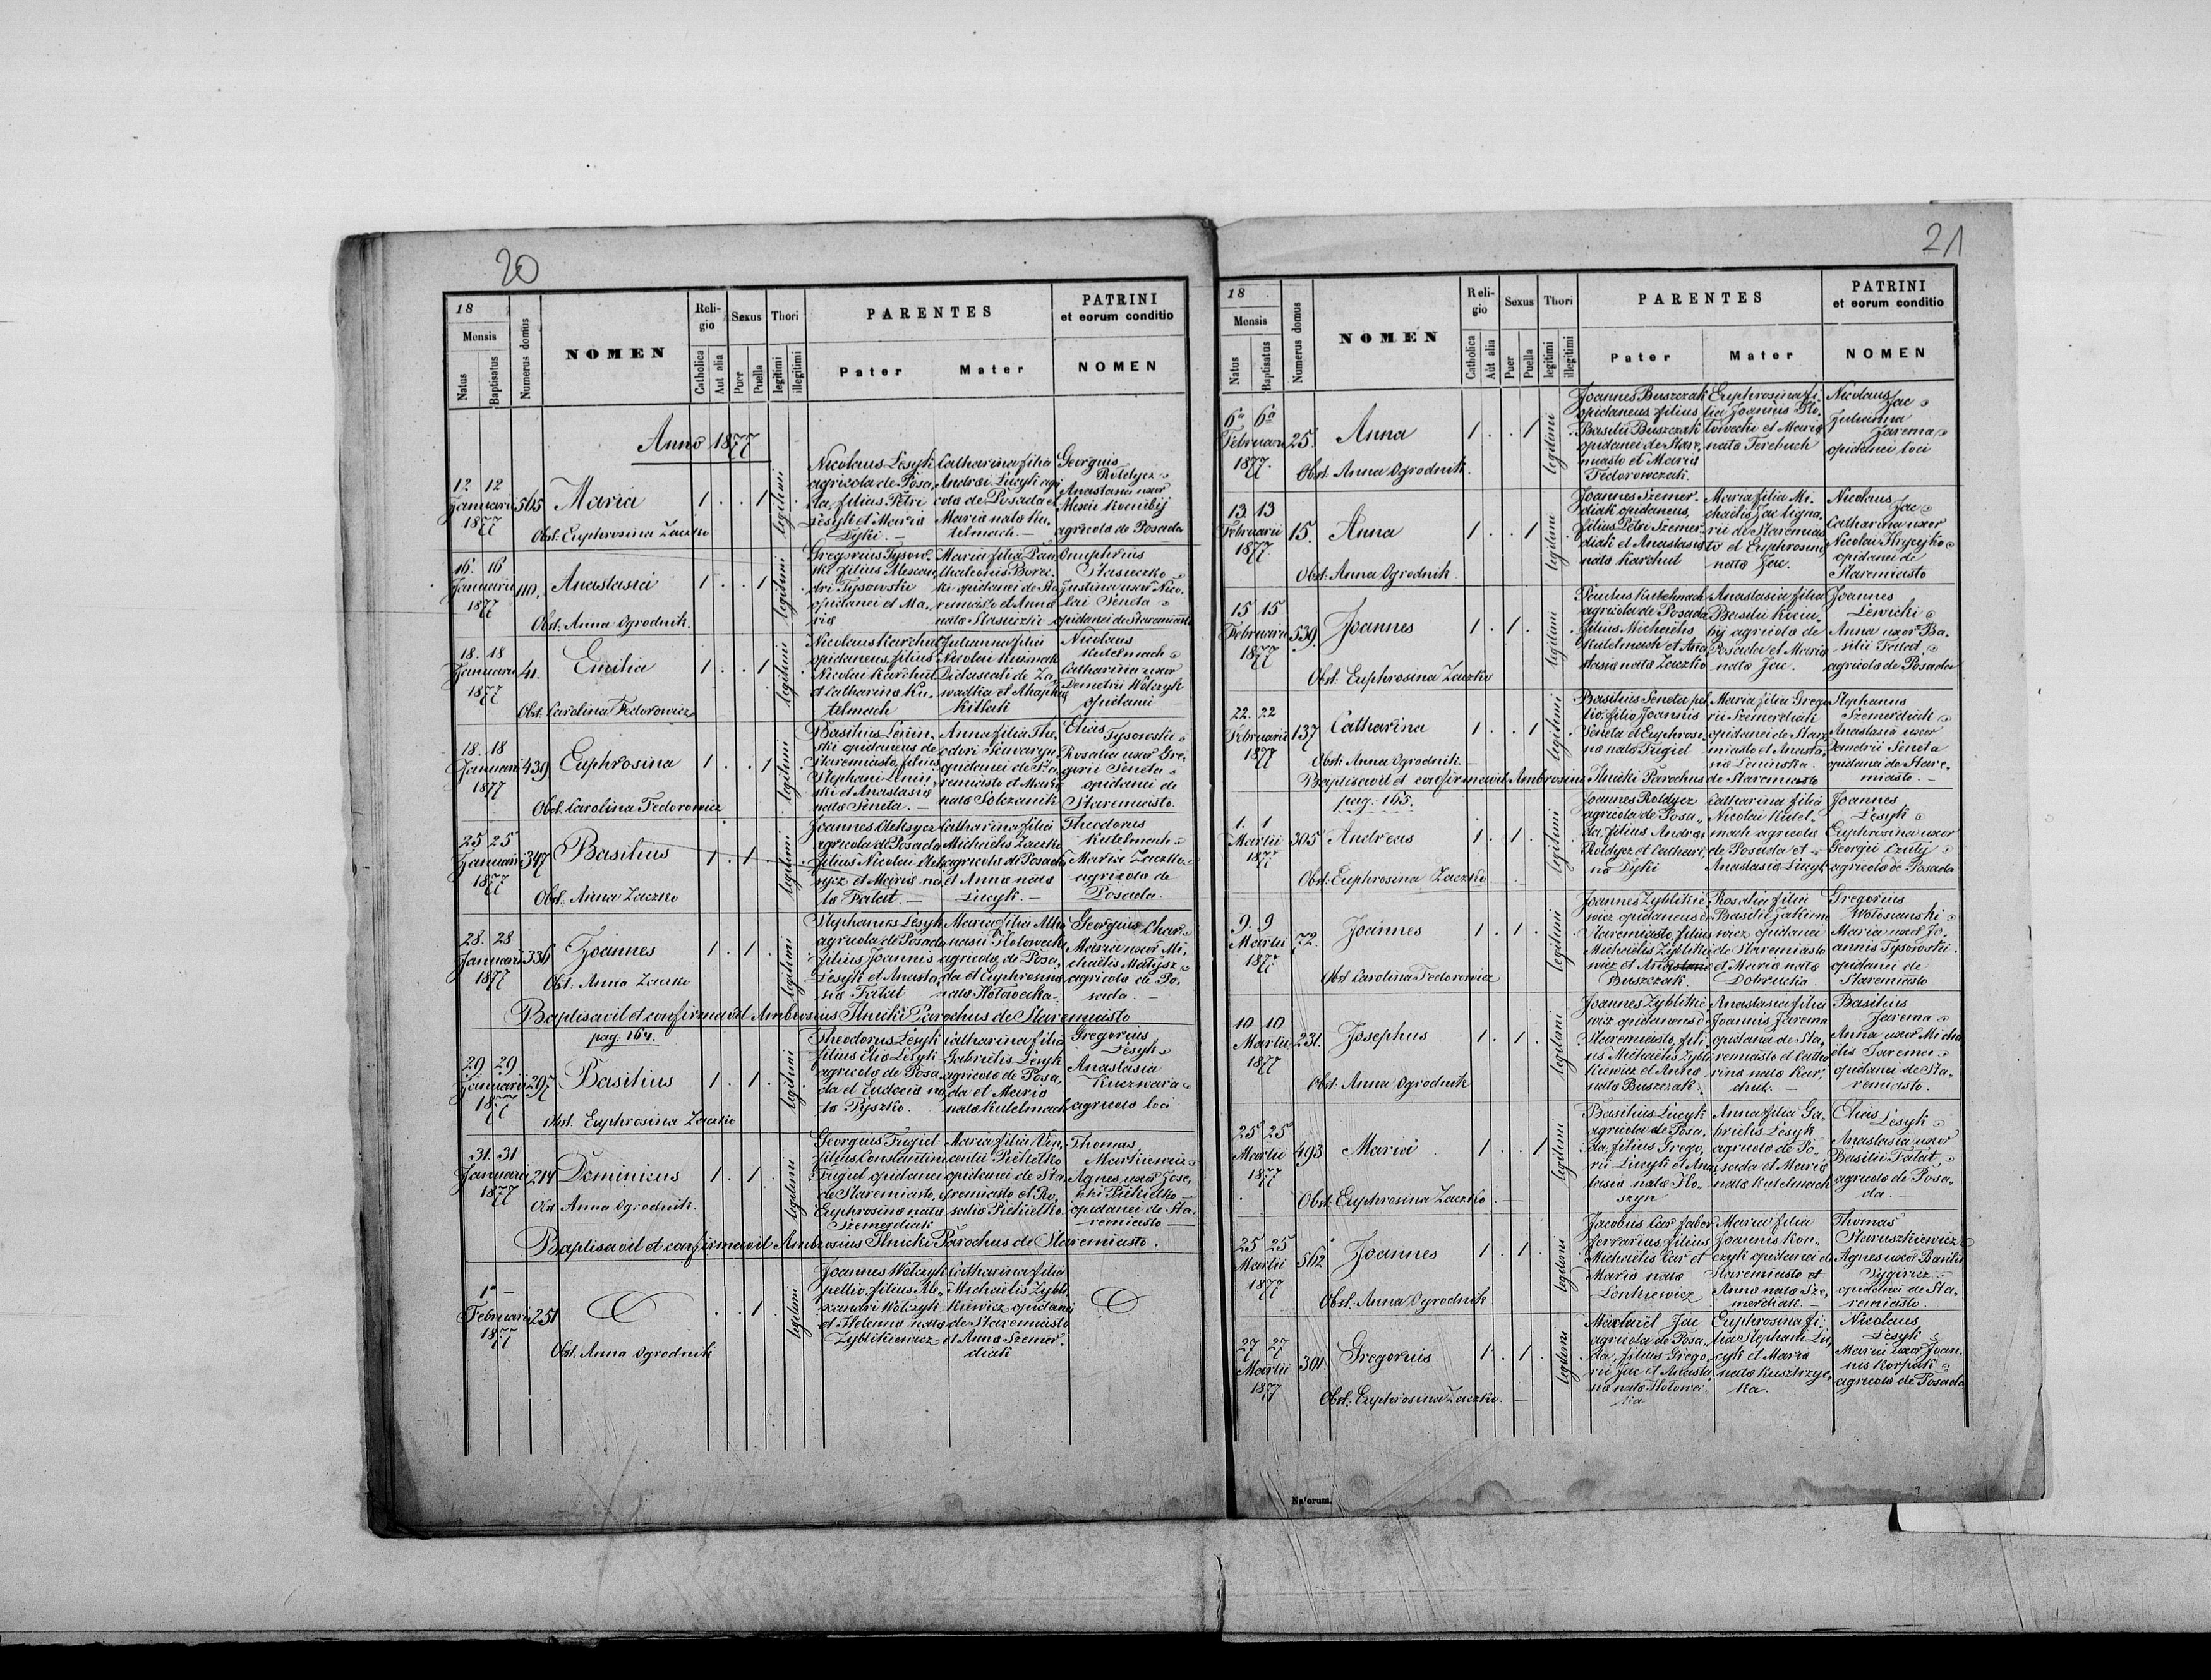 20
18
Mensis
Natus
Baptisatus
Numerus domus
NOMEN
Religio
Catholica
Aut alia
Sexus
Puer
Puella
Thori
legitimi
illegitimi
PARENTES
Pater
Mater
PATRINI
et eorum conditio
NOMEN
Anno 1877
12 12
Januarii
1877
565
Maria
1 . . 1
legitimi
Obst. Euphrosina Zaczko
Nicolaus Lesyk
agricola de Posa,
da, filius Petri
Lesyk et Maria
Dyki. —
Catharina filia
Andrei Lucyk agri
cola de Posada et
Maria nata Ku,
telmach. —
Georgius
Roldycz
Anastasia uxor
Alexii Kociubij
agricola de Posada
16. 16
Januarii
1877
110.
Anastasia
1 . . 1
legitimi
Obst. Anna Ogrodnik.
Gregorius Tysow,
ski filius Alexan,
dri Tysowski
opidanei et Ma,
ria
Maria filia Pan
thaleonis Borec
ki opidanei de Sta
remiasto et Anna
nata Stasieczko
Onuphrius
Stasieczko
Justina uxor Nico,
lai Seneta
opidanei de Staremiasto
18. 18
Januarii
1877
41.
Emilia
1 . . 1
legitimi
Obst. Carolina Fedorowicz
Nicolaus Karchut
opidaneus, filius
Nicolai Karchut
et Catharina Ku,
telmach
Julianna filia
Nicolai Kuśniak
Didascali de Za,
wadka et Ahaphia
Kitlak
Nicolaus
Kutelmach
Catharina uxor
Demetrii Wolczyk
opidanei
18. 18
Januarii
1877
439
Euphrosina
1 . . 1
legitimi
Obst. Carolina Fedorowicz
Basilius Lenin,
ski opidaneus de
Staremiasto, filius
Stephani Lenin,
ski et Anastasia
nata Seneta. —
Anna filia The,
odori
opidanei de Sta,
remiasto et Maria
nata Solczanik
Elias
Tysowski
Rosalia uxor Gre,
gorii Seneta
opidanei de
Staremiasto.
25 25
Januarii
1877
347
Basilius
1 . 1 .
legitimi
Obst. Anna Zaczko
Joannes Oleksycz
agricola de Posada
filius Nicolai Olek
sycz et Maria na
ta Fatat. —
Catharina filia
Michaëlis Zaczko
agricola de Posada
et Anna nata
Lucyk. —
Theodorus
Kutelmach
Maria Zaczko
agricola de
Posada.
28. 28
Januarii
1877
336
Joannes
1 . 1 .
legitimi
Obst. Anna Zaczko
Stephanus Lesyk
agricola de Posada
filius Joannis
Lesyk et Anasta,
sia Fatat
Maria filia Atha
nasii Holowecki
agricola de Posa,
da et Euphrosina
nata Holowecka.
Georgius Char
Maria uxor Mi,
chaëlis Matyjsz
agricola de Po,
sada. —
Baptisavit et confirmavit Ambrosius Ilnicki Parochus de Staremiasto
pag. 164.
29 29
Januarii
1877
297
Basilius
1 . 1 .
legitimi
Obst. Euphrosina Zaczko
Theodorus Lesyk
filius Elia Lesyk
agricola de Posa,
da et Eudocia na
ta Pyszko.
Catharina filia
Gabrielis Lesyk
agricola de Posa,
da et Maria
nata Kutelmach
Gregorius
Lesyk
Anastasia
Kuczwara
agricola loci
31. 31
Januarii
1877
214
Dominicus
1 . 1 .
legitimi
Obst. Anna Ogrodnik.
Georgius Fugiel
filius Constantini
Fugiel opidanei
de Staremiasto, et
Euphrosina nata
Szemerdiak
Maria filia Vin,
centii Piekielko
opidanei de Sta,
remiasto et Ro,
salia Piekielko.
Thomas
Markiewicz
Agnes uxor Jose,
phi Piekielko
opidanei de Sta,
remiasto —
Baptisavit et confirmavit Ambrosius Ilnicki Parochus de Staremiasto.
1a —
Februarii
1877
251
. . 1 .
legitimi
Obst. Anna Ogrodnik
Joannes Wolczyk
pellio, filius Ale,
xandri Wolczyk
et Helenna nata
Zyblikiewicz
Catharina filia
Michaëlis Zybli
kiewicz opidanei
de Staremiasto
et Anna Szemer
diak
21
18
Mensis
Natus
Baptisatus
Numerus domus
NOMEN
Religio
Catholica
Aut alia
Sexus
Puer
Puella
Thori
legitimi
illegitimi
PARENTES
Pater
Mater
PATRINI
et eorum conditio
NOMEN
6a 6a
Februarii
1877.
25.
Anna
1 . . 1
legitimi
Obst. Anna Ogrodnik.
Joannes Buszczak
opidaneus filius
Basilii Buszczak
opidanei de Stare,
miasto et Maria
Fedorowczak.
Euphrosina fi,
lia Joannis Ho,
lowecki et Maria
nata Terebuch
Nicolaus
Jac
Julianna
Jarema
opidanei loci
13 13
Februarii
1877
15.
Anna
1 . . 1
legitimi
Obst. Anna Ogrodnik
Joannes Szemer,
diak opidaneus,
filius Petri Szemer,
diak et Anastasia
nata Karchut
Maria filia Mi,
chaëlis Jac ligna,
rii de Staremias
to et Euphrosina
nata Jac.
Nicolaus
Jac
Catharina uxor
Nicolai Hrycyjko
opidanei de
Staremiasto
15 15
Februarii
1877
539.
Joannes
1 . 1 .
legitimi
Obst. Euphrosina Zaczko
Paulus Kutelmach
agricola de Posada
filius Michaëlis
Kutelmach et Ana
stasia nata Zaczko
Anastasia filia
Basilii Kociu,
bij agricola de
Posada et Maria
nata Jac.
Joannes
Lewicki
Anna uxor Ba,
silii Fatat,
agricola de Posada
22. 22
Februarii
1877
137
Catharina
1 . . 1
legitimi
Obst. Anna Ogrodnik.
Basilius Seneta pel
lio, filio Joannis
Seneta et Euphrosi,
na nata Fugiel
Maria filia Grego
rii Szemerdiak
opidanei de Stare
miasto et Anasta,
sia Leninska.
Stephanus
Szemerdiak
Anastasia uxor
Demetrii Seneta
opidanei de Stare,
miasto. —
Baptisavit et confirmavit Ambrosius Ilnicki Parochus de Staremiasto
pag. 165.
1. 1
Martii
1877
305
Andreas
1 . 1 .
legitimi
Obst. Euphrosina Zaczko
Joannes Roldycz
agricola de Posa,
da, filius Andrea
Roldycz et Cathari,
na Dyki
Catharina filia
Nicolai Kutel,
mach agricola
de Posada et
Anastasia Lucyk
Joannes
Lesyk
Euphrosina uxor
Georgii Czulij
agricola de Posada
9. 9
Martii
1877
72.
Joannes
1 . 1 .
legitimi
Obst. Carolina Fedorowicz
Joannes Zyblikie,
wicz opidaneus de
Staremiasto, filius
Michaëlis Zyblikie
wicz et Anastasia
Buszczak.
Rosalia filia
Basilii Jakiem
wicz opidanei
de Staremiasto
et Maria nata
Dobrucka.
Gregorius
Wolosianski
Maria uxor Jo,
annis Tysowski.
opidanei de
Staremiasto
10 10
Martii
1877
231.
Josephus
1 . 1 .
legitimi
Obst. Anna Ogrodnik
Joannes Zyblikie,
wicz opidaneus de
Staremiasto, fili,
us Michaëlis Zybli
kiewicz et Anna
nata Buszczak.
Anastasia filia
Joannis Jarema
opidanei de Sta,
remiasto et Catha
rina nata Kar,
chut. —
Basilius
Jarema
Anna uxor Micha
ëlis Jarema
opidanei de Sta,
remiasto.
25 25
Martii
1877
493
Maria
1 . . 1
legitimi
Obst. Euphrosina Zaczko. —
Basilius Lucyk
agricola de Posa,
da, filius Grego,
rii Lucyk et Ana,
stasia nata Ho,
szyn
Anna filia Ga,
brielis Lesyk
agricola de Po,
sada et Maria
nata Kutelmach
Elias
Lesyk
Anastasia uxor
Basilii Fatat,
agricola de Posa,
da. —
25 25
Martii
1877
562
Joannes
1 . 1 .
legitimi
Obst. Anna Ogrodnik
Jacobus Car faber
ferrarius, filius
Michaëlis Car et
Maria nata
Lonkiewicz
Maria filia
Joannis Kon,
czyk opidanei de
Staremiasto et
Anna nata Sze,
merdiak. —
Thomas
Staruszkiewicz
Agnes uxor Basilii
opidanei de Sta,
remiasto.
27 27
Martii
1877
301.
Gregorius
1 . 1 .
legitimi
Obst. Euphrosina Zaczko. —
Michaël Jac
agricola de Posa,
da, filius Grego,
rii Jac et Anasta
sia nata Holowec
ka
Euphrosina fi,
lia Stephani Lu,
cyk et Maria
nata Kusztrzyc,
ka.
Nicolaus
Lesyk
Maria uxor Joan,
nis Korpak
agricola de Posada
Natorum.